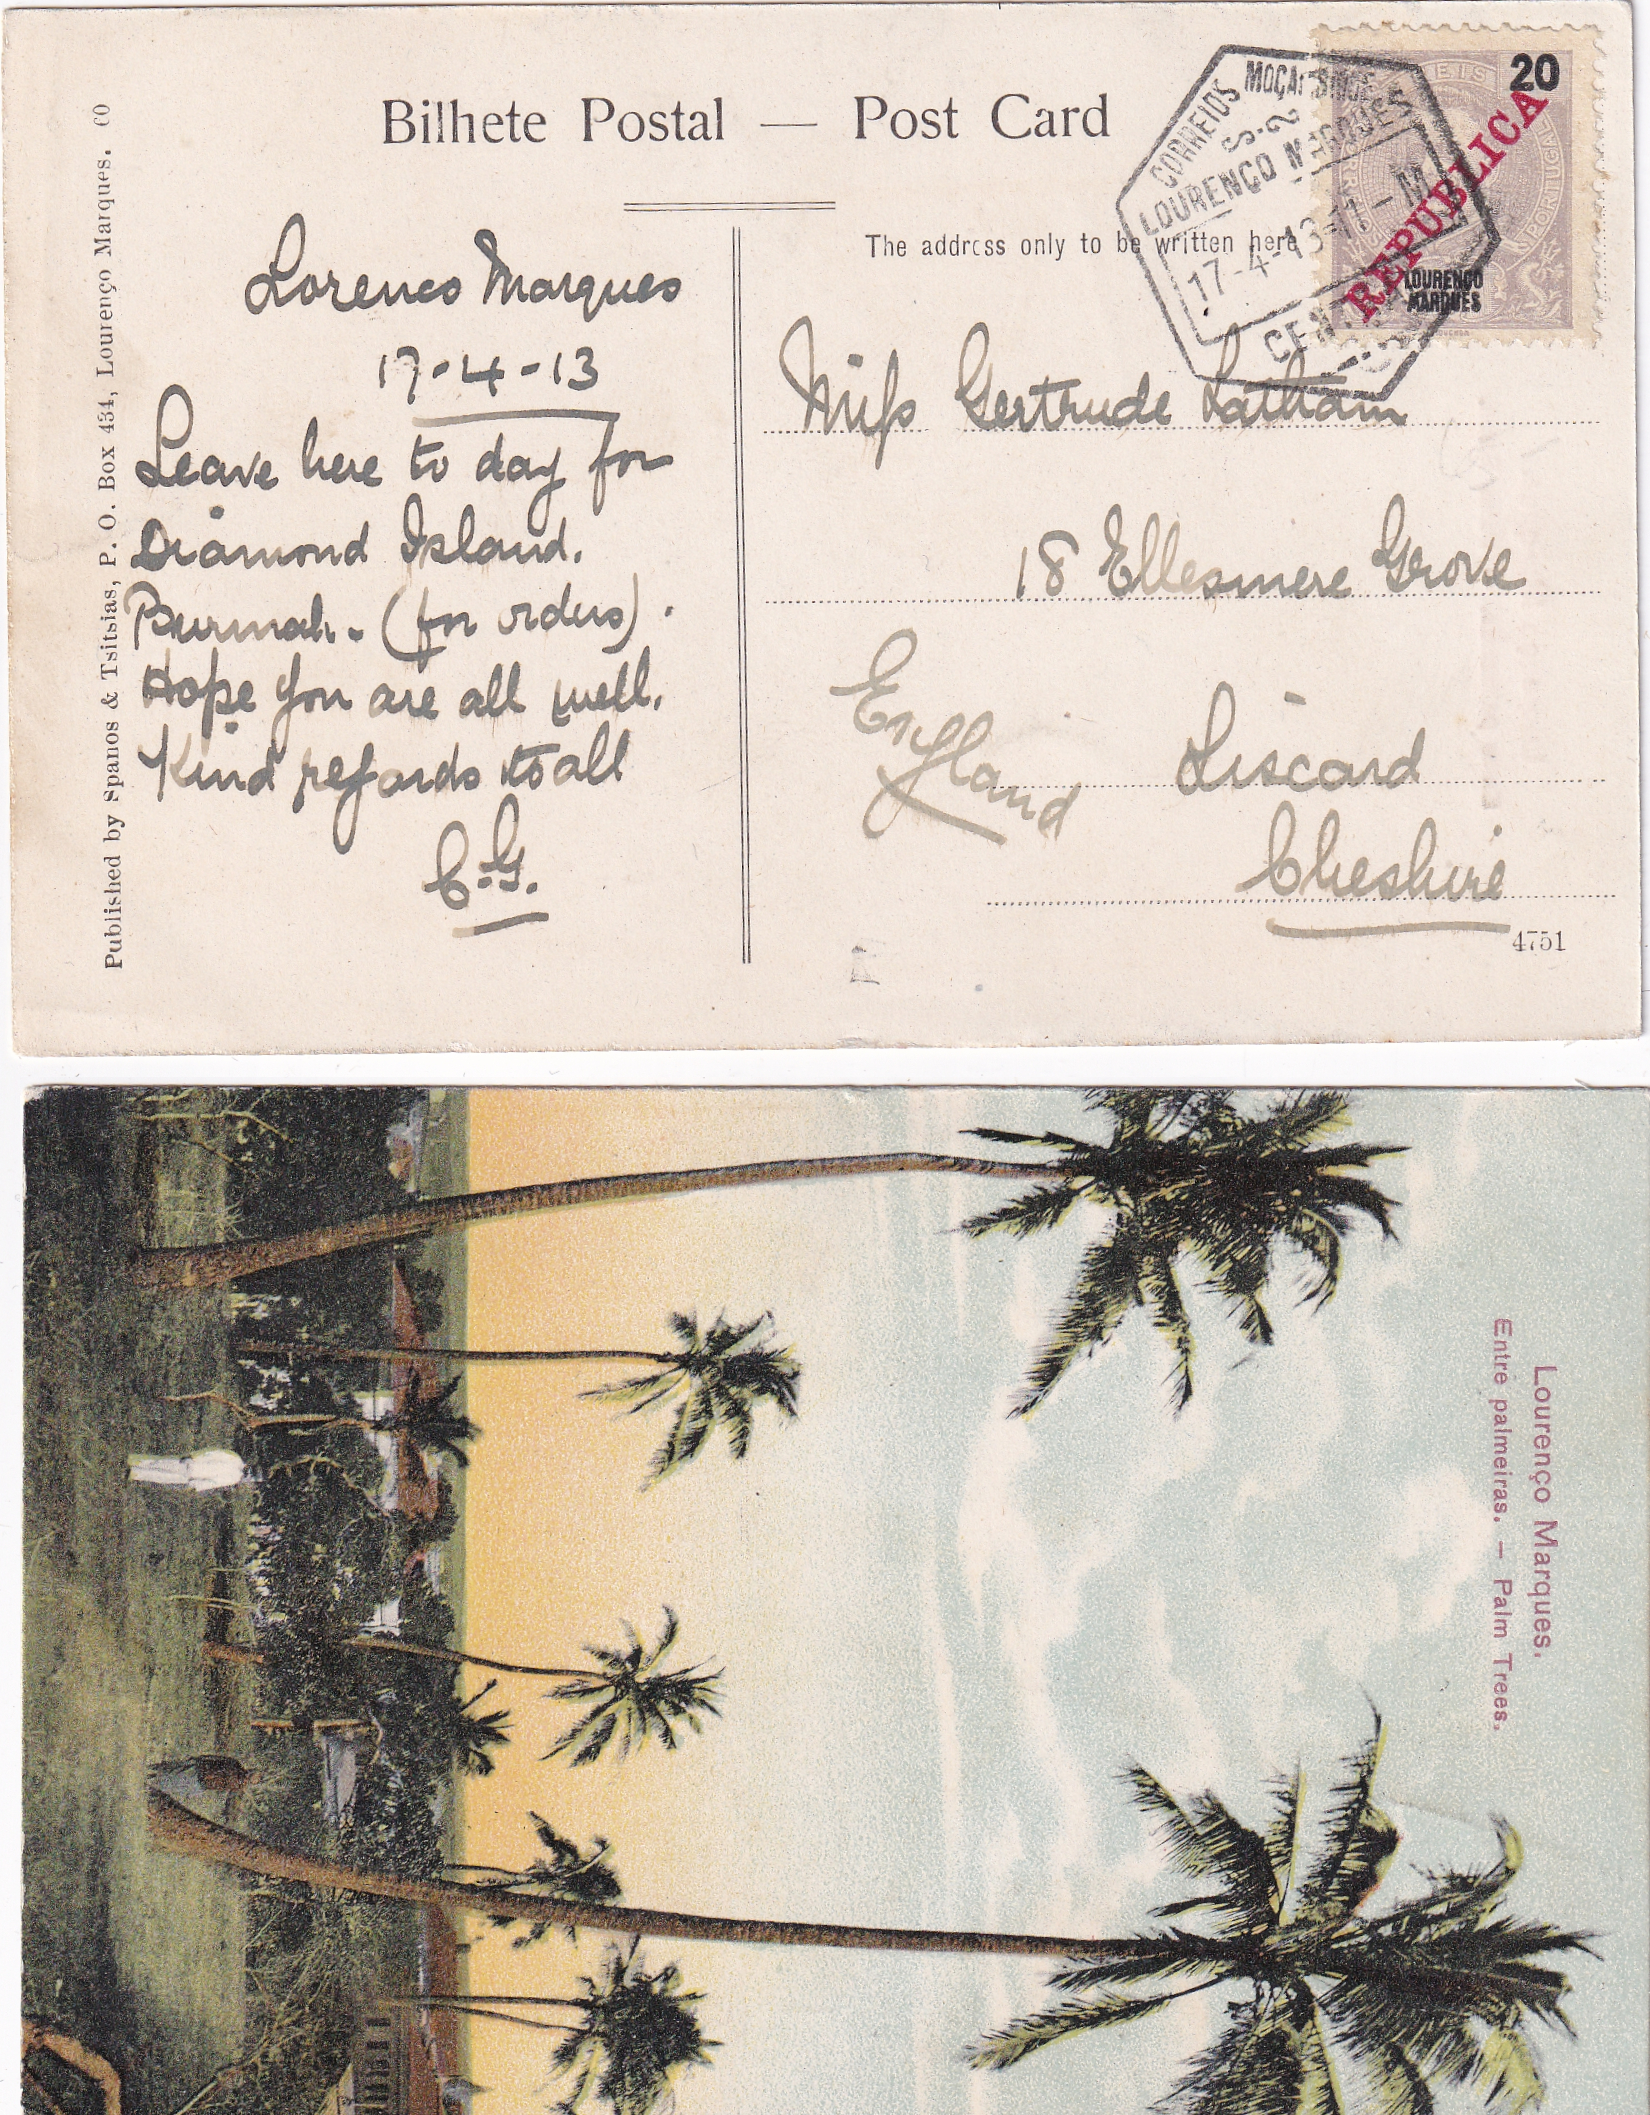 Bilhete Postal — Post Card
The address only to be written here
Published by Spanos & Tsitsias, P. O. Box 434, Lourenço Marques. 60
Lorenco Marques
17-4-13
Leave here to day for
Diamond Island.
Burmah. (for orders).
Hope you are all well.
Kind regards to all
C.G.
20
REIS
PORTUGAL
REPUBLICA
LOURENÇO
MARQUES
CORREIOS MOÇAMBIQUE
S.2
LOURENÇO MARQUES
17-4-13-11-M
Miss Gertrude Latham
18 Ellesmere Grove
Liscard
Cheshire
England
4751
Lourenço Marques.
Entre palmeiras. — Palm Trees.